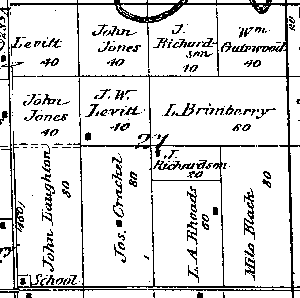 Levitt
40
John
Jones
40
J.
Richard-
son
40
Wm
Gutswood
40
John
Jones
40
J.W.
Levitt
40
I. Brimberry
60
27
John Laughton
80
Jos. Crackel
80
J.
Richardson
20
L.A. Rhoads
60
Milo Black
80
School